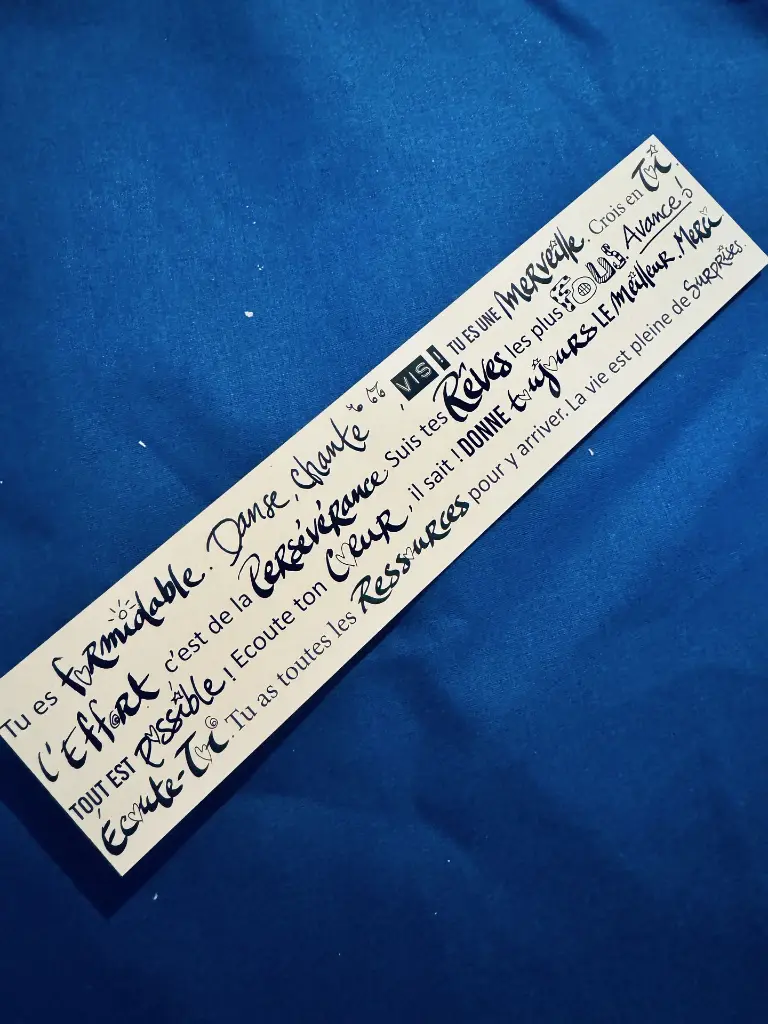 Tu es formidable. Danse, chante, VIS! TU ES UNE Merveille. Crois en Toi.
L'Effort c'est de la Persévérance Suis tes Rêves les plus FOUS Avance!
TOUT EST Possible! Ecoute ton Cœur, il sait! DONNE toujours LE Meilleur. Merci
Écoute-Toi. Tu as toutes les Ressources pour y arriver. La vie est pleine de Surprises.